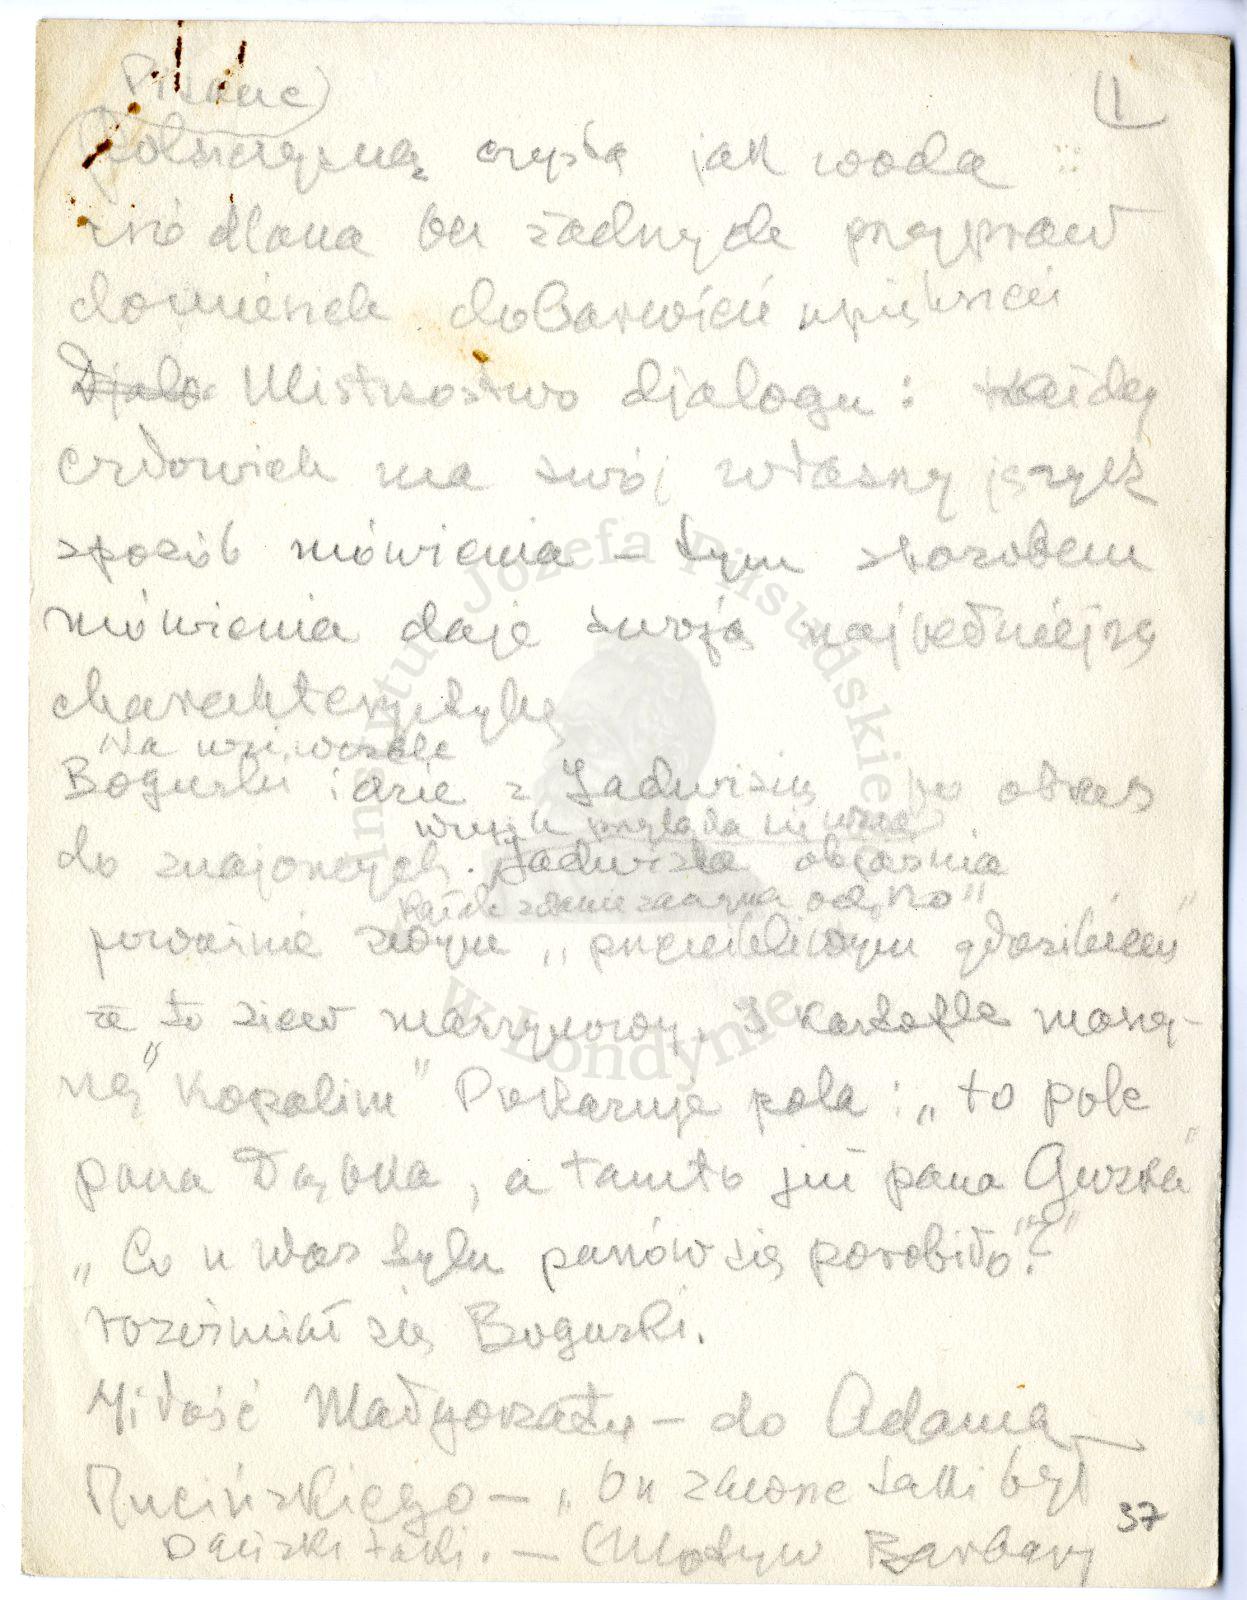 Pisane)
1
Polszczyzną czystą jak woda
źródlana bez żadnych przypraw
domieszek dobarwień upiększeń
Djalo Mistrzostwo djalogu: każdy
człowiek ma swój własny język
sposób mówienia – tym sposobem
mówienia daje swoją najpełniejszą
charakterystykę
Na
Bogurski idzie z Jadwisią
wujek przygląda się
do znajomych. Jadwiszka objaśnia
każde zdanie zaczyna od „no"
poważnie swym „ "
że to siew maszynowy. I kartofle maszy-
ną „kopalim" Pokazuje pola: „to pole
pana Dąbka, a tamto już pana Guzka"
„Co u was tylu panów się porobiło?"
roześmiał się Bogurski.
Miłość Małgorzaty – do Adama
Rucińskiego – „On zawsze taki był
Pański taki. – (Motyw Barbary
37
Instytut Józefa Piłsudskiego
w Londynie